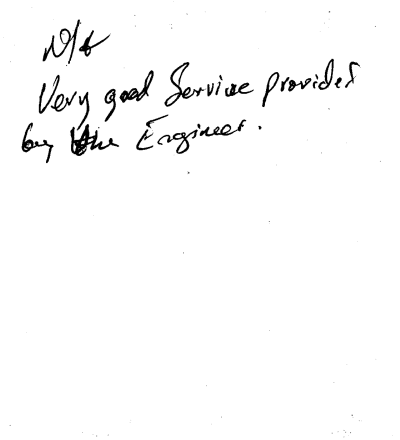 Very good Service provided
by the Engineer.